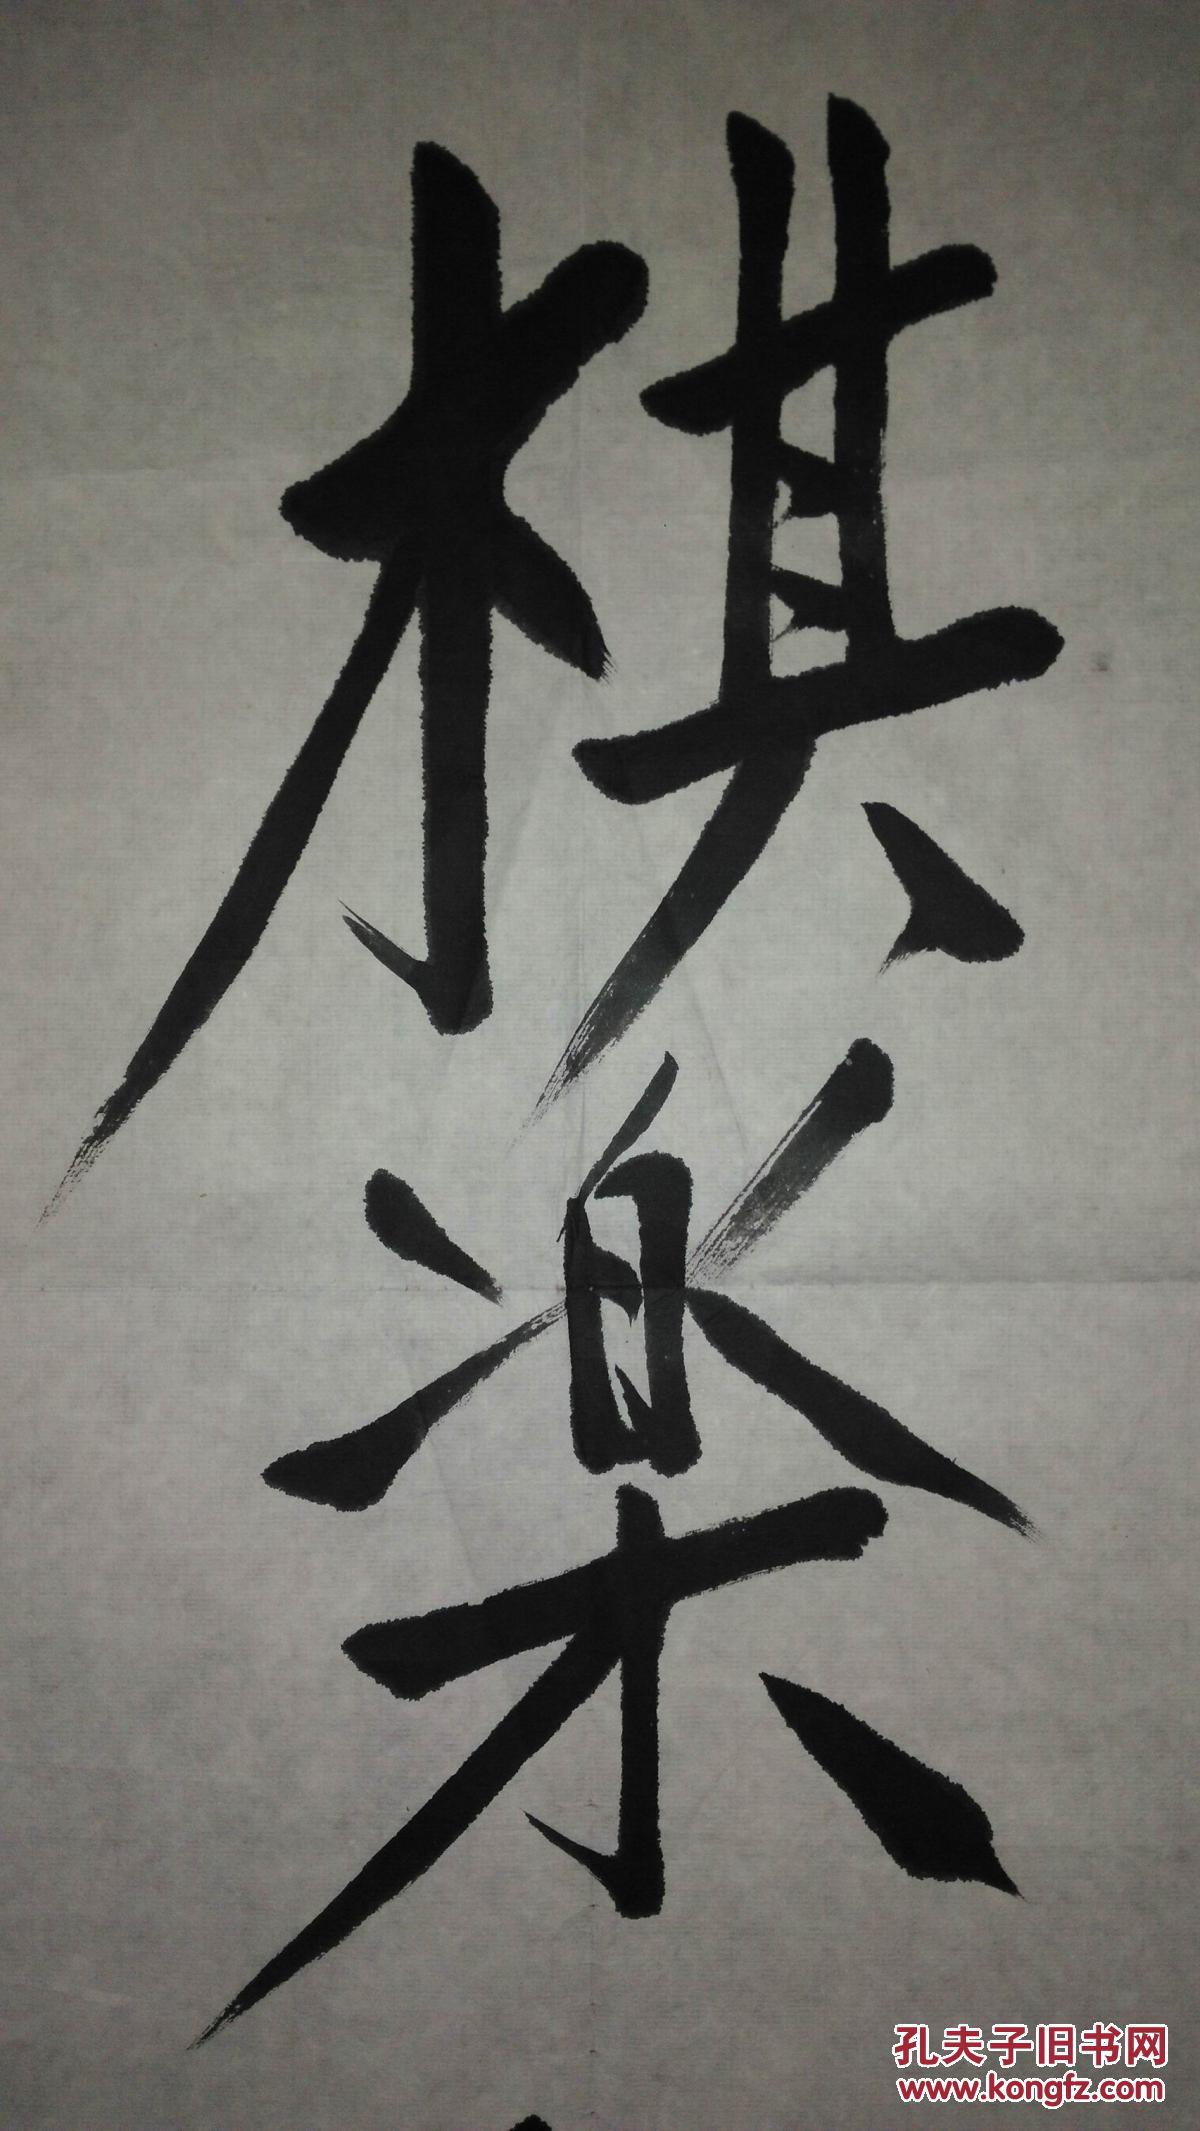 棋
楽
孔夫子旧书网
www.kongfz.com